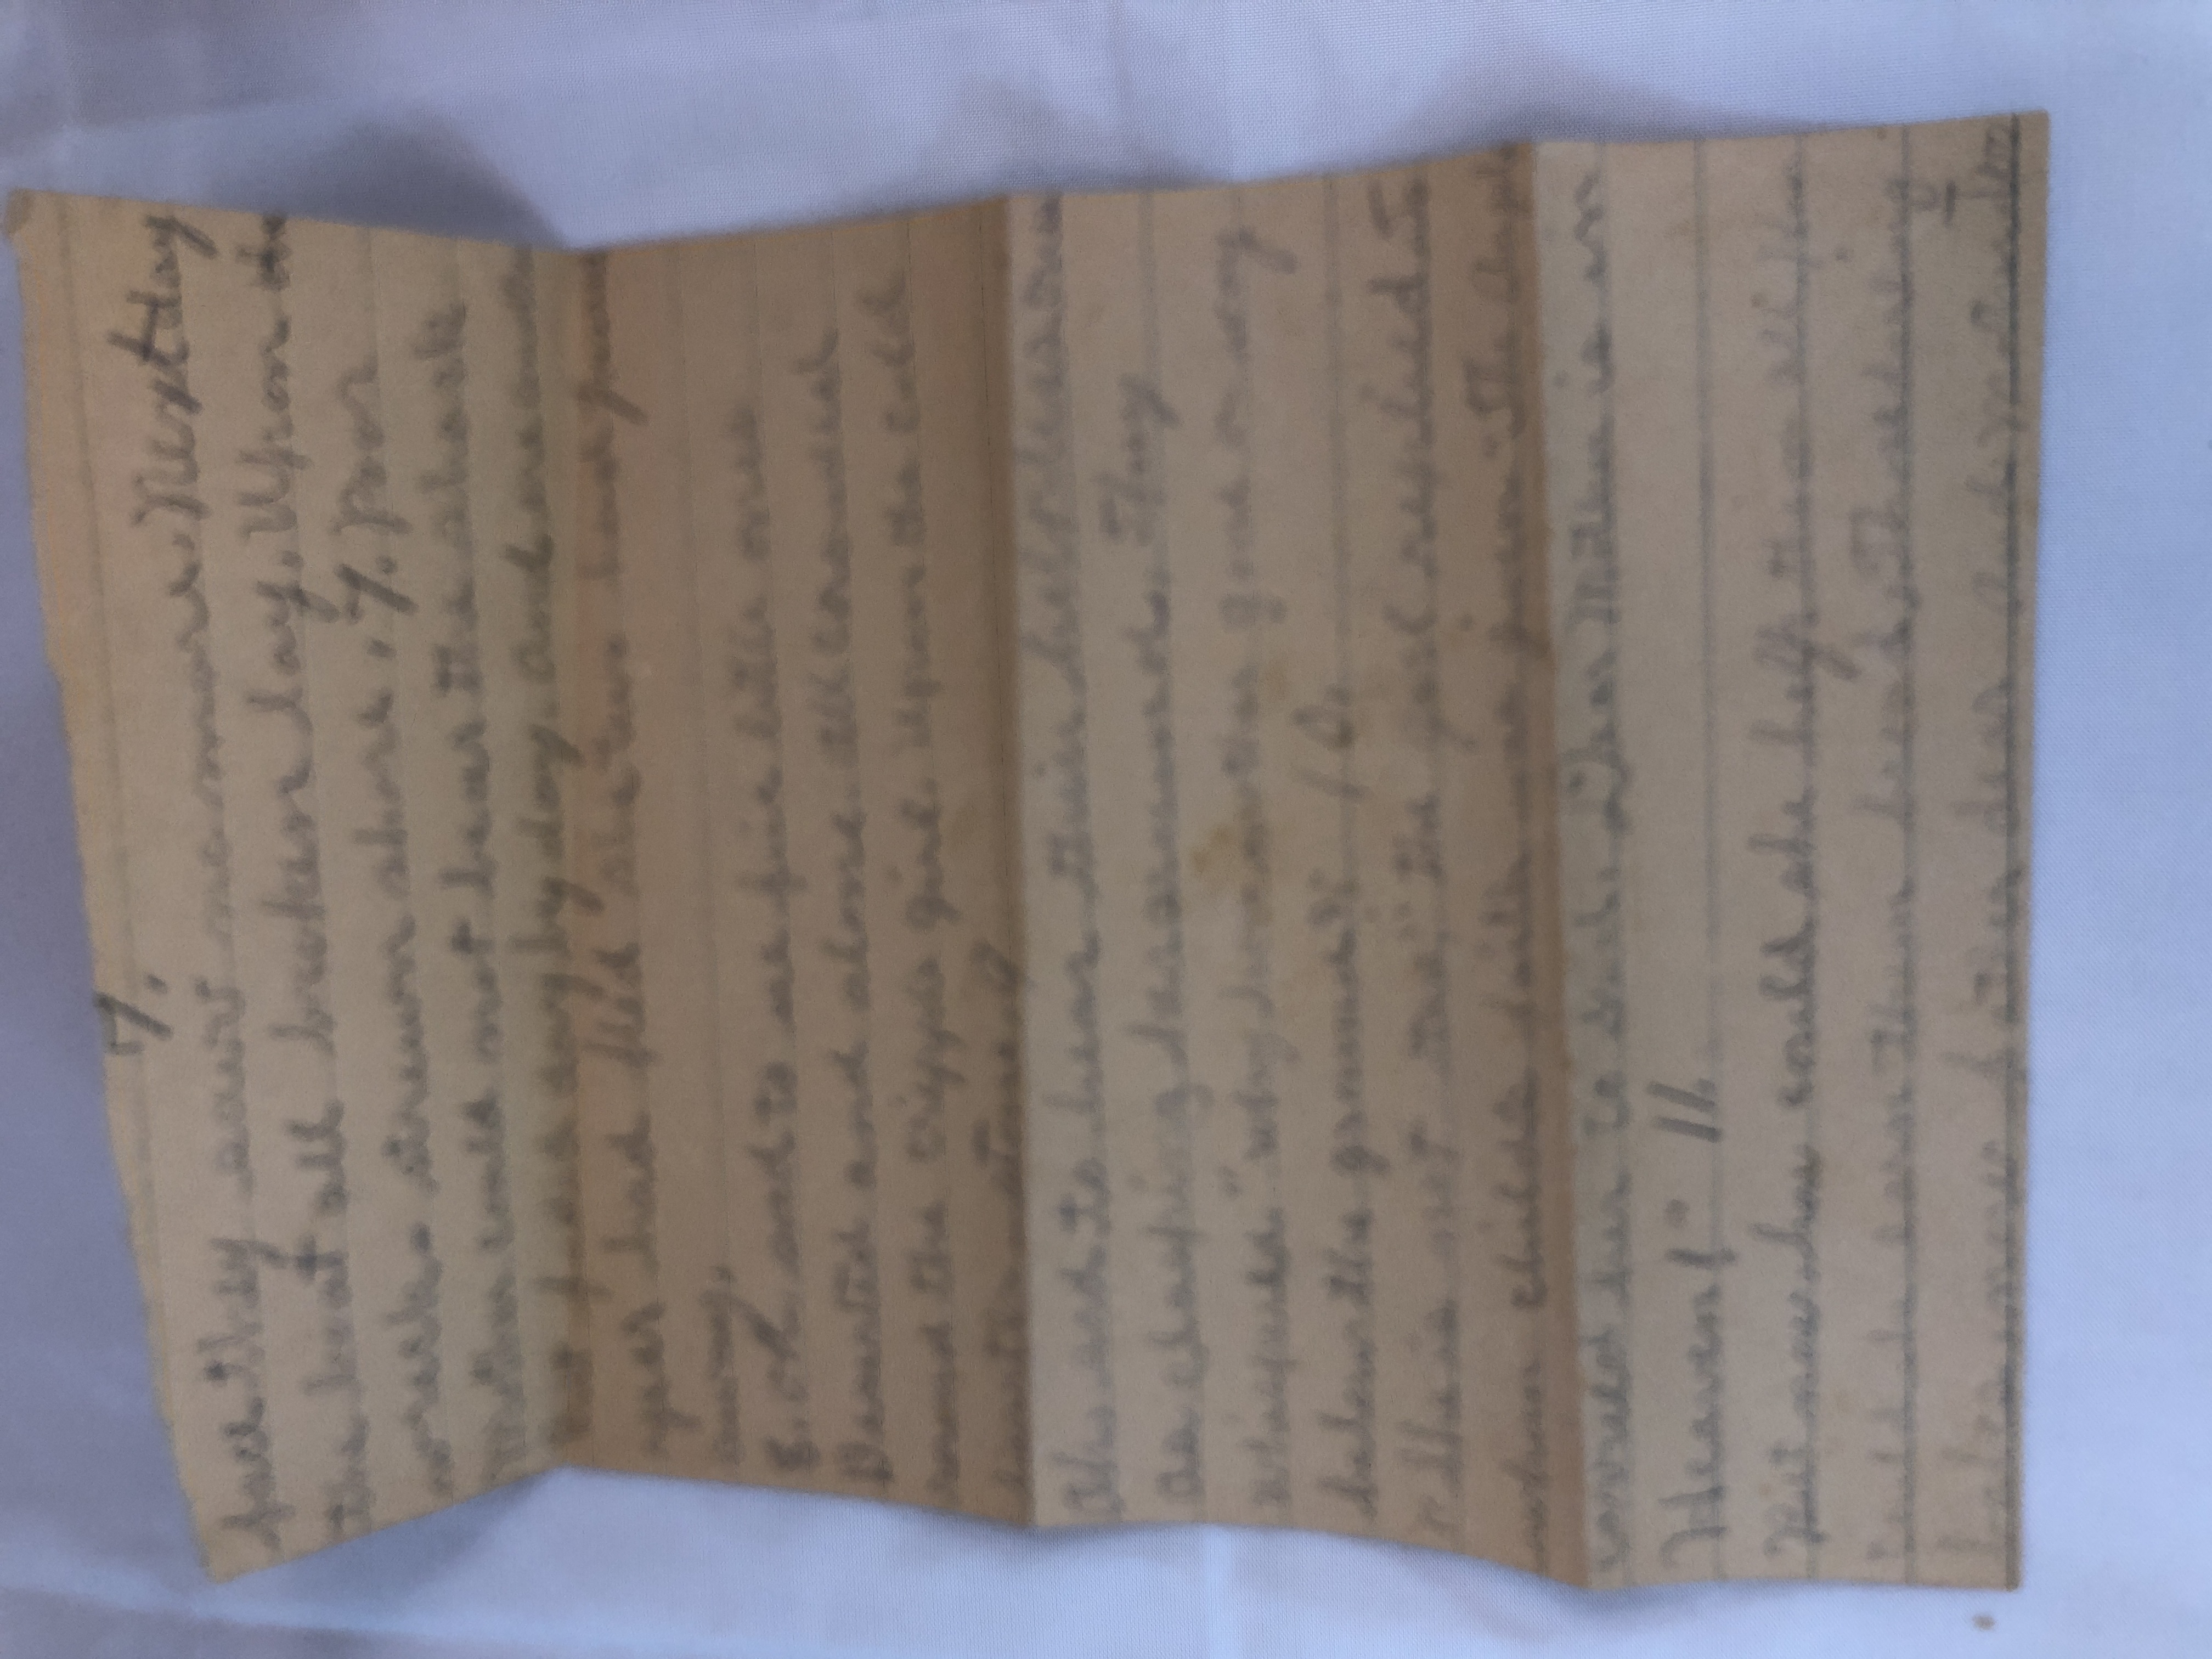 7.
face they saw no more. Next day
the boat all broken lay. Upon the
wreck-strewn shore. 7. Poor
Mother could not bear the shock
But faded day by day. And ere another
year had fled she too had passed
away.
8. Oh sad to see five little ones
Deserted and alone. All crowded
round the cripple girl. Upon the cold
hearth-stone. 9
Oh. sad to hear their helpless
as clasping her around. They
whispered "why have mother gone
below the ground?" 10.
"She is not the girl replied to
whom child's faith was given "The Angels
carried her to God. Dear Mother is in
Heaven!" 11.
But now, how could she help them all, how
could she earn them bread, Those
babes, now father dear And mother